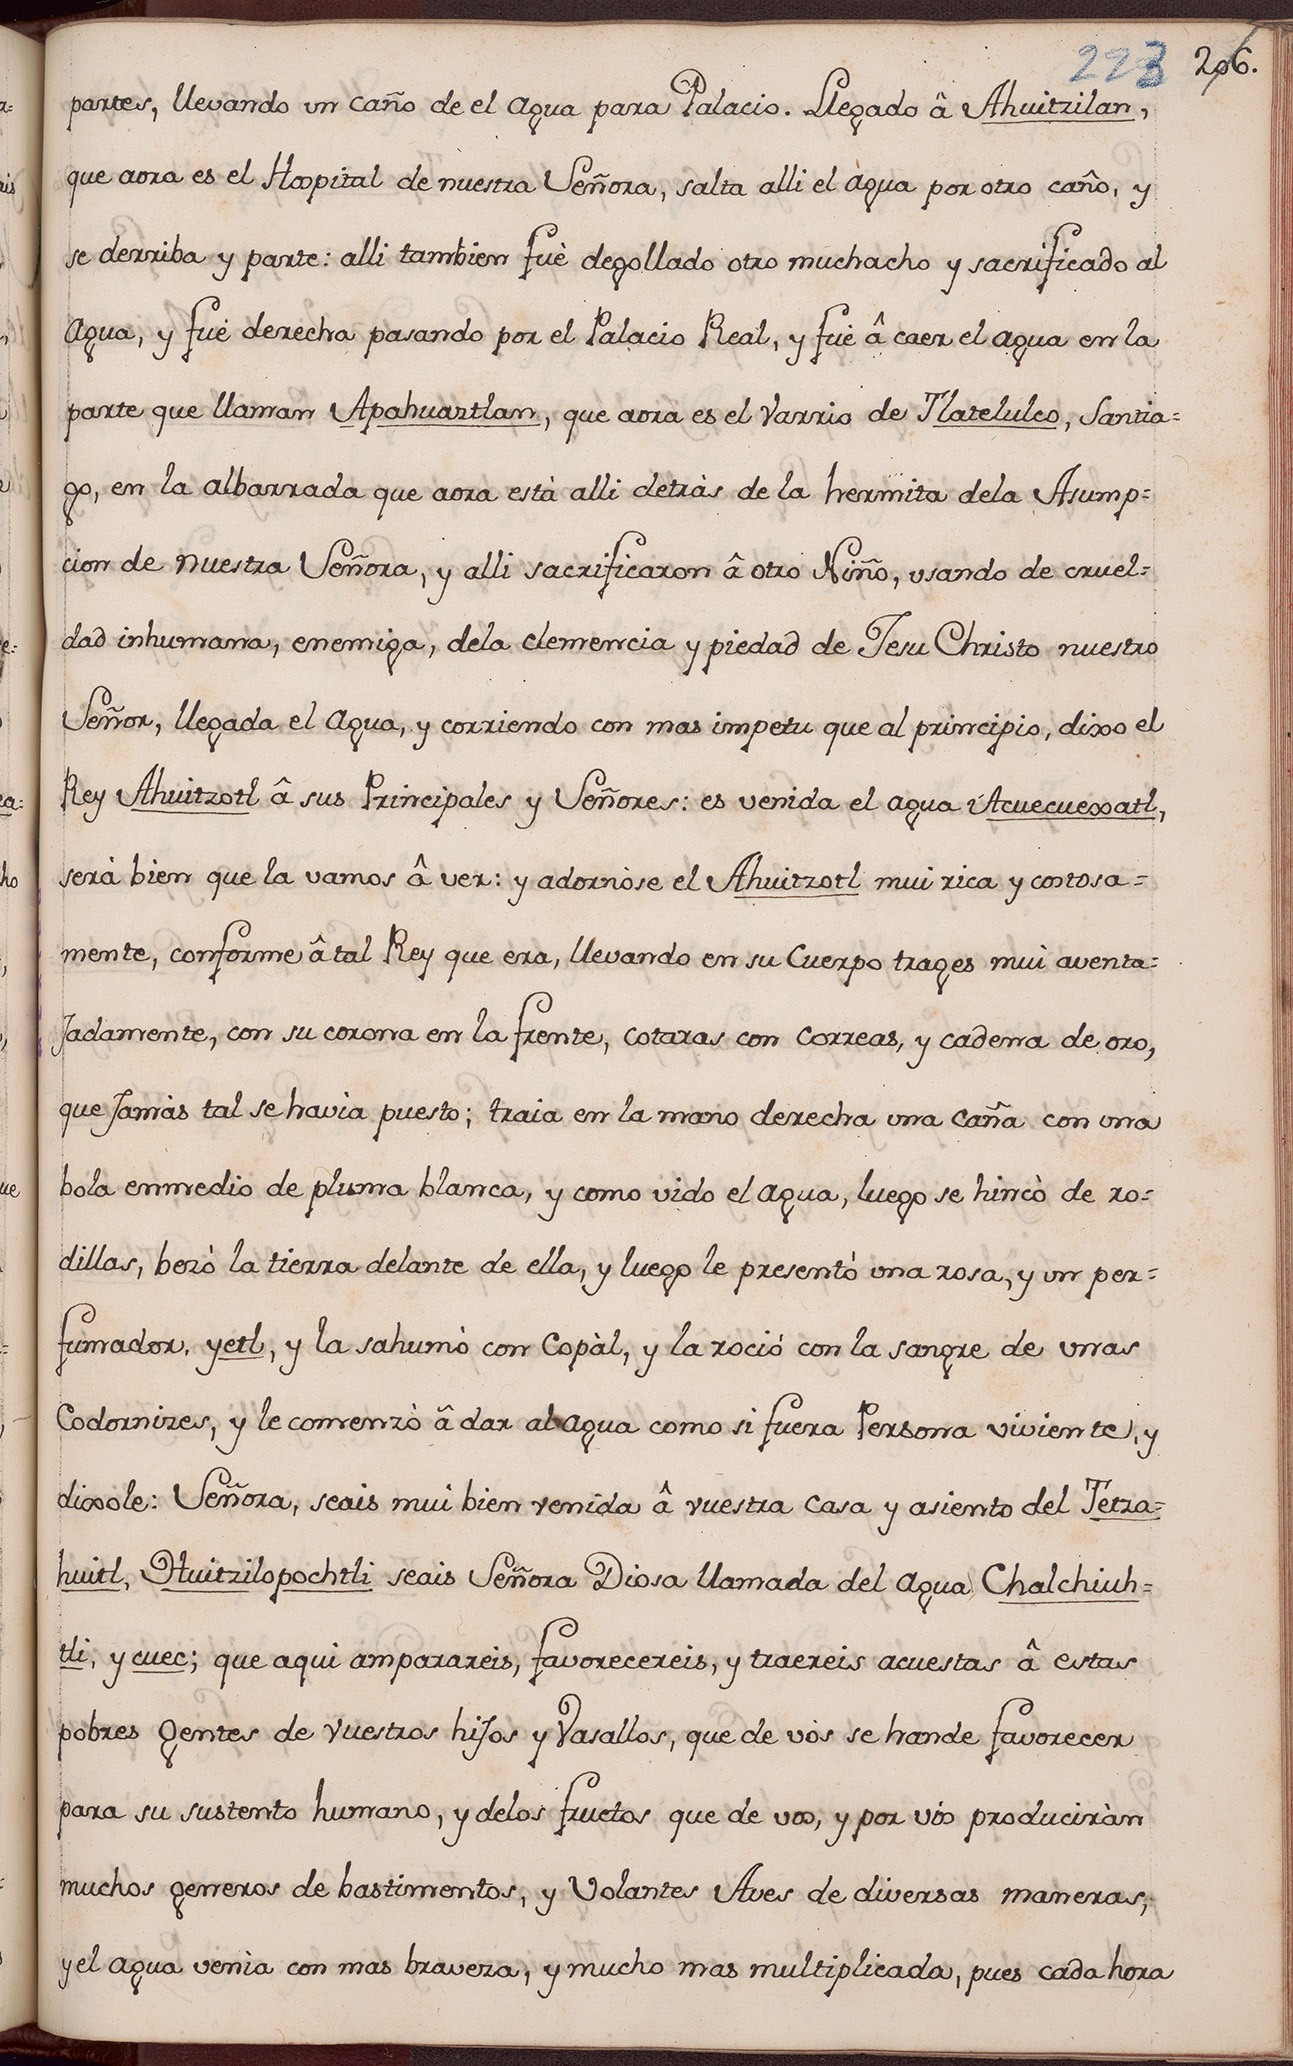 223 206.
partes, llevando un caño de el agua para Palacio. Llegado â Ahuitzilan,
que aora es el Hospital de nuestra Señora, salta alli el agua por otro caño, y
se derriba y parte: alli tambien fuè degollado otro muchacho y sacrificado al
agua, y fuè derecha pasando por el Palacio Real, y fuè â caer el agua en la
parte que llaman Apahuaztlan, que aora es el Varrio de Tlatelulco, Santia=
go, en la albarrada que aora està alli detràs de la hermita dela Asump=
cion de nuestra Señora, y alli sacrificaron â otro Niño, usando de cruel=
dad inhumana, enemiga, dela clemencia y piedad de Jesu Christo nuestro
Señor, llegada el agua, y corriendo con mas impetu que al principio, dixo el
Rey Ahuitzotl â sus Principales y Señores: es venida el agua Acuecuexatl,
serà bien que la vamos â ver: y adornòse el Ahuitzotl mui rica y costosa=
mente, conforme â tal Rey que era, llevando en su Cuerpo trages mui aventa=
Jadamente, con su corona en la frente, cotaras con correas, y cadena de oro,
que Jamàs tal se havia puesto; traia en la mano derecha una caña con una
bola enmedio de pluma blanca, y como vido el agua, luego se hincò de ro=
dillas, bezò la tierra delante de ella, y luego le presentò una rosa, y un per=
fumador, yetl, y la sahumò con Copàl, y la roció con la sangre de unas
Codornizes, y le comenzò â dar al agua como si fuera Persona viviente, y
dixole: Señora, seais mui bien venida â vuestra casa y asiento del Tetza=
huitl, Huitzilopochtli seais Señora Diosa llamada del agua Chalchiuh=
tli, y cuec; que aqui amparareis, favorecereis, y traereis acuestas â estas
pobres gentes de vuestros hiJos y Vasallos, que de vòs se hande favorecer
para su sustento humano, y delos fructos que de vos, y por vòs produciràn
muchos generos de bastimentos, y Volantes Aves de diversas maneras,
y el agua venìa con mas braveza, y mucho mas multiplicada, pues cada hora